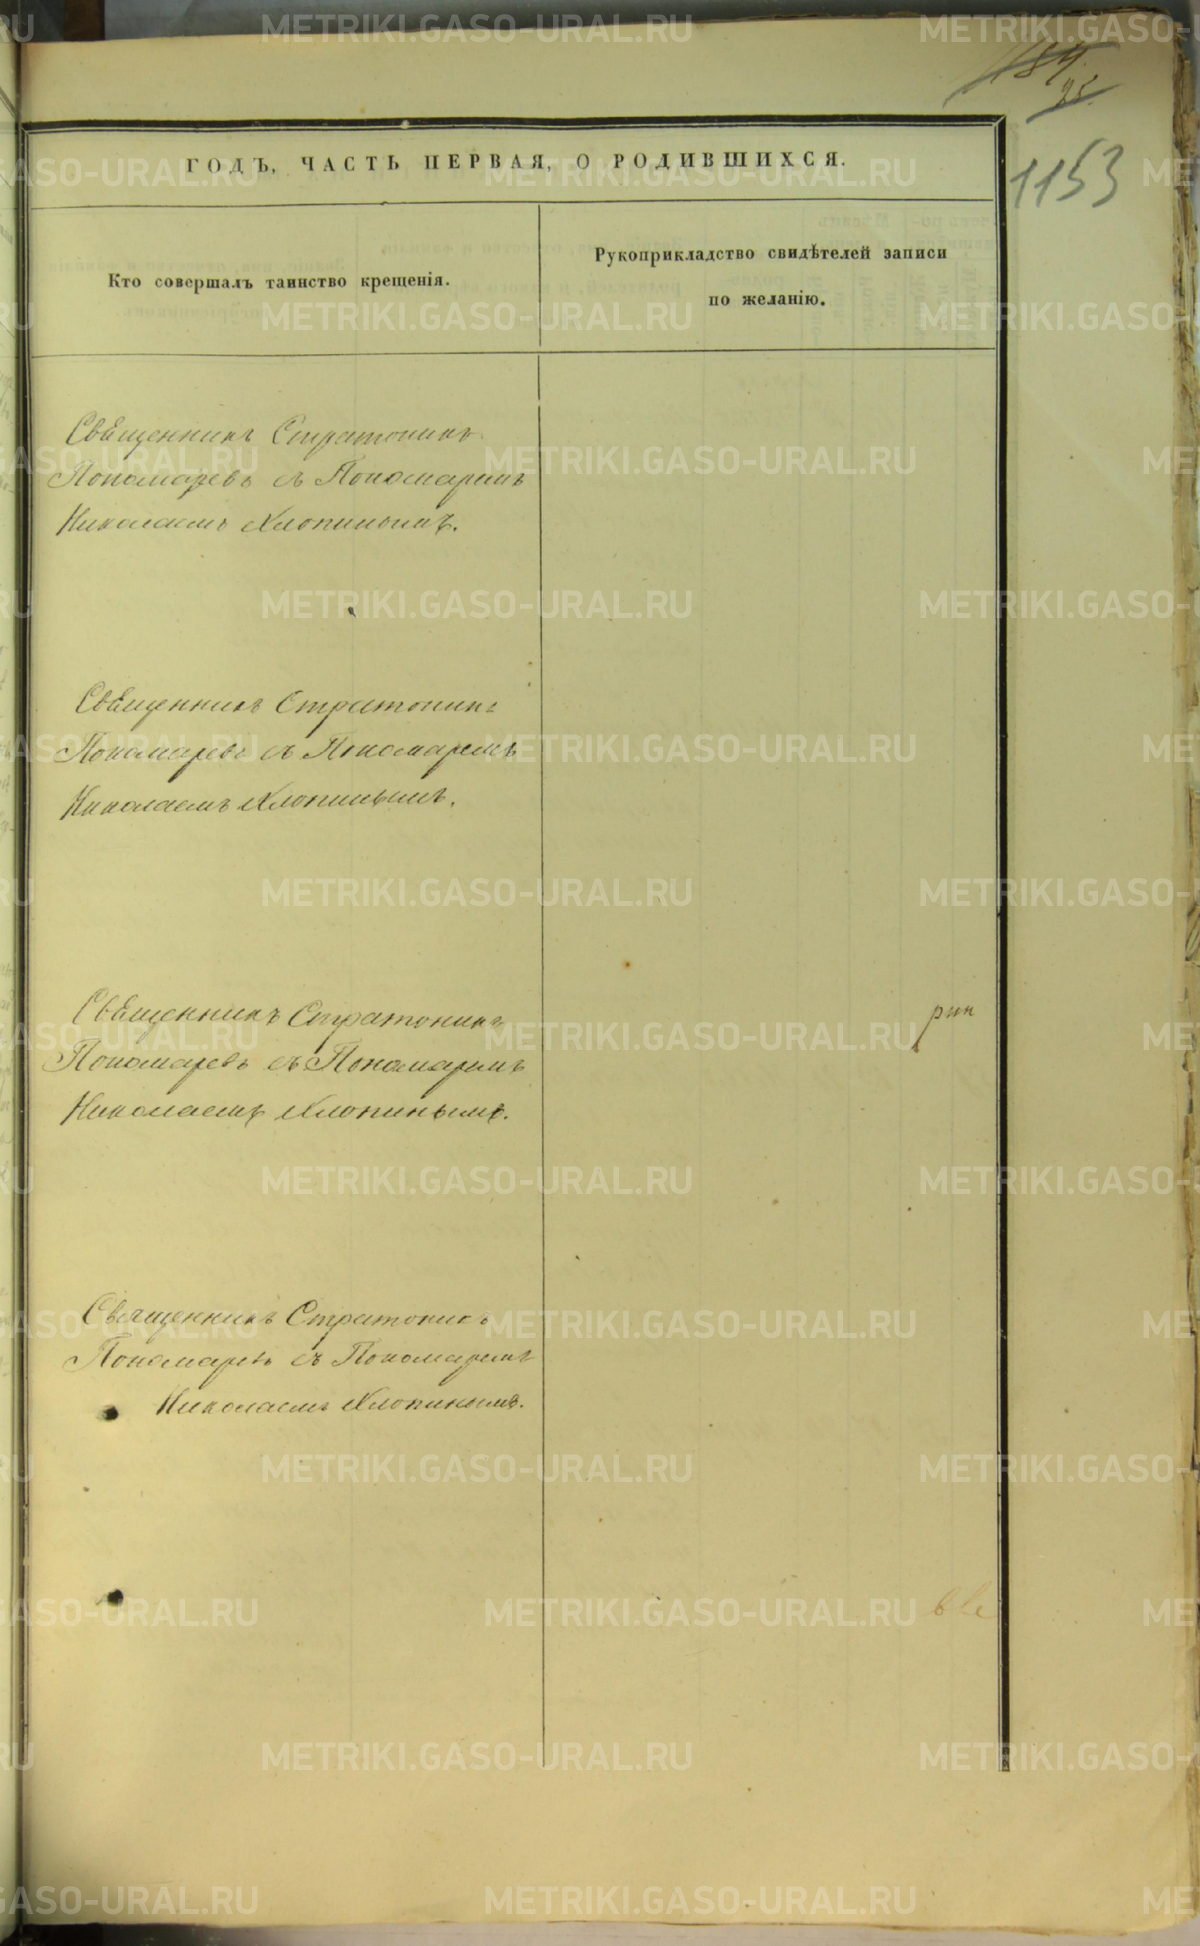 189
95.
1153
ГОДЪ, ЧАСТЬ ПЕРВАЯ, О РОДИВШИХСЯ.
Кто совершалъ таинство крещенія.
Рукоприкладство свидѣтелей записи
по желанію.
Священникъ Стратоникъ
Пономаревъ съ Пономаремъ
Николаемъ Хлопинымъ.
Священникъ Стратоникъ
Пономаревъ съ Пономаремъ
Николаемъ Хлопинымъ.
Священникъ Стратоникъ
Пономаревъ съ Пономаремъ
Николаемъ Хлопинымъ.
рин
Священникъ Стратоникъ
Пономаревъ съ Пономаремъ
Николаемъ Хлопинымъ.
METRIKI.GASO-URAL.RU